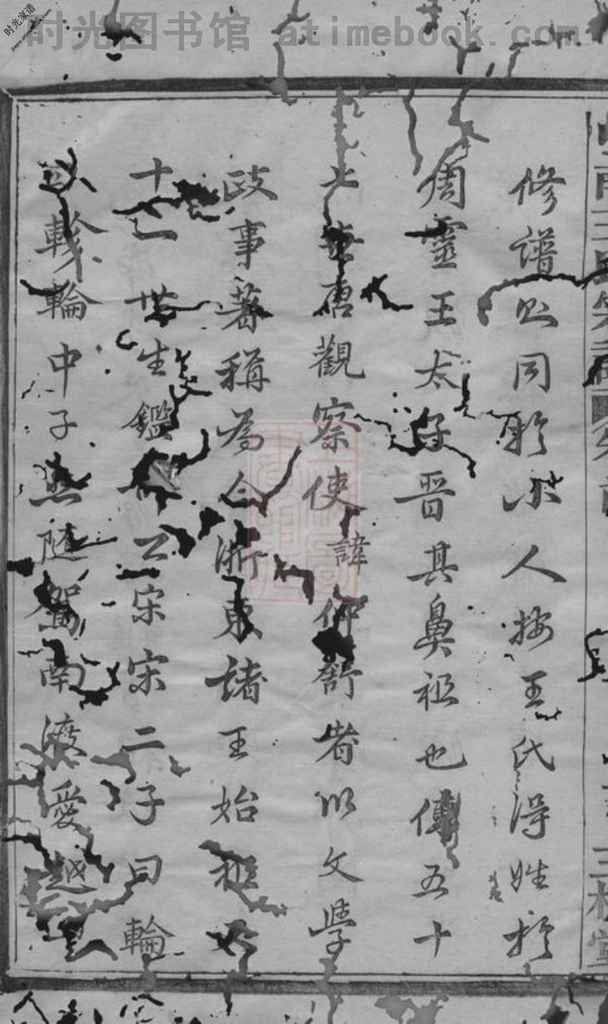 时光图书馆 atimebook.com
修譜則同於尔人按王氏得姓於
周靈王太子晉其鼻祖也傳五十
世唐觀察使諱仲舒者以文學
政事著稱為今浙東諸王始祖又
十一世生鑑公宋宋二子曰輪
輪中子 隨駕南渡愛越
三槐堂